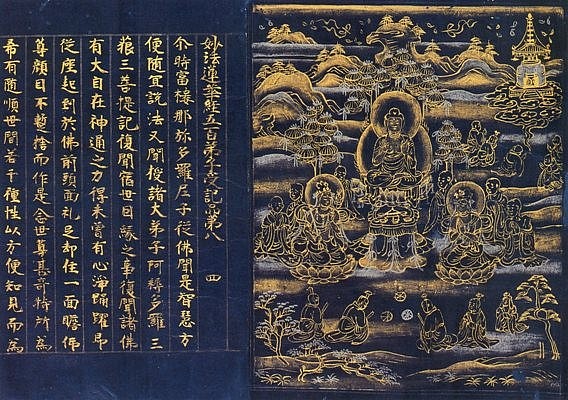 妙法蓮華経五百弟子受記品第八 四
尒時富樓那弥多羅尼子従佛聞是智慧方
便随宜説法又聞授諸大弟子阿耨多羅三
藐三菩提記復聞宿世因縁之事復聞諸佛
有大自在神通之力得未曽有心浄踊躍即
従座起到於佛前頭面礼足却住一面瞻仰
尊顔目不暫捨而作是念世尊甚奇特所為
希有随順世間若干種性以方便知見而為